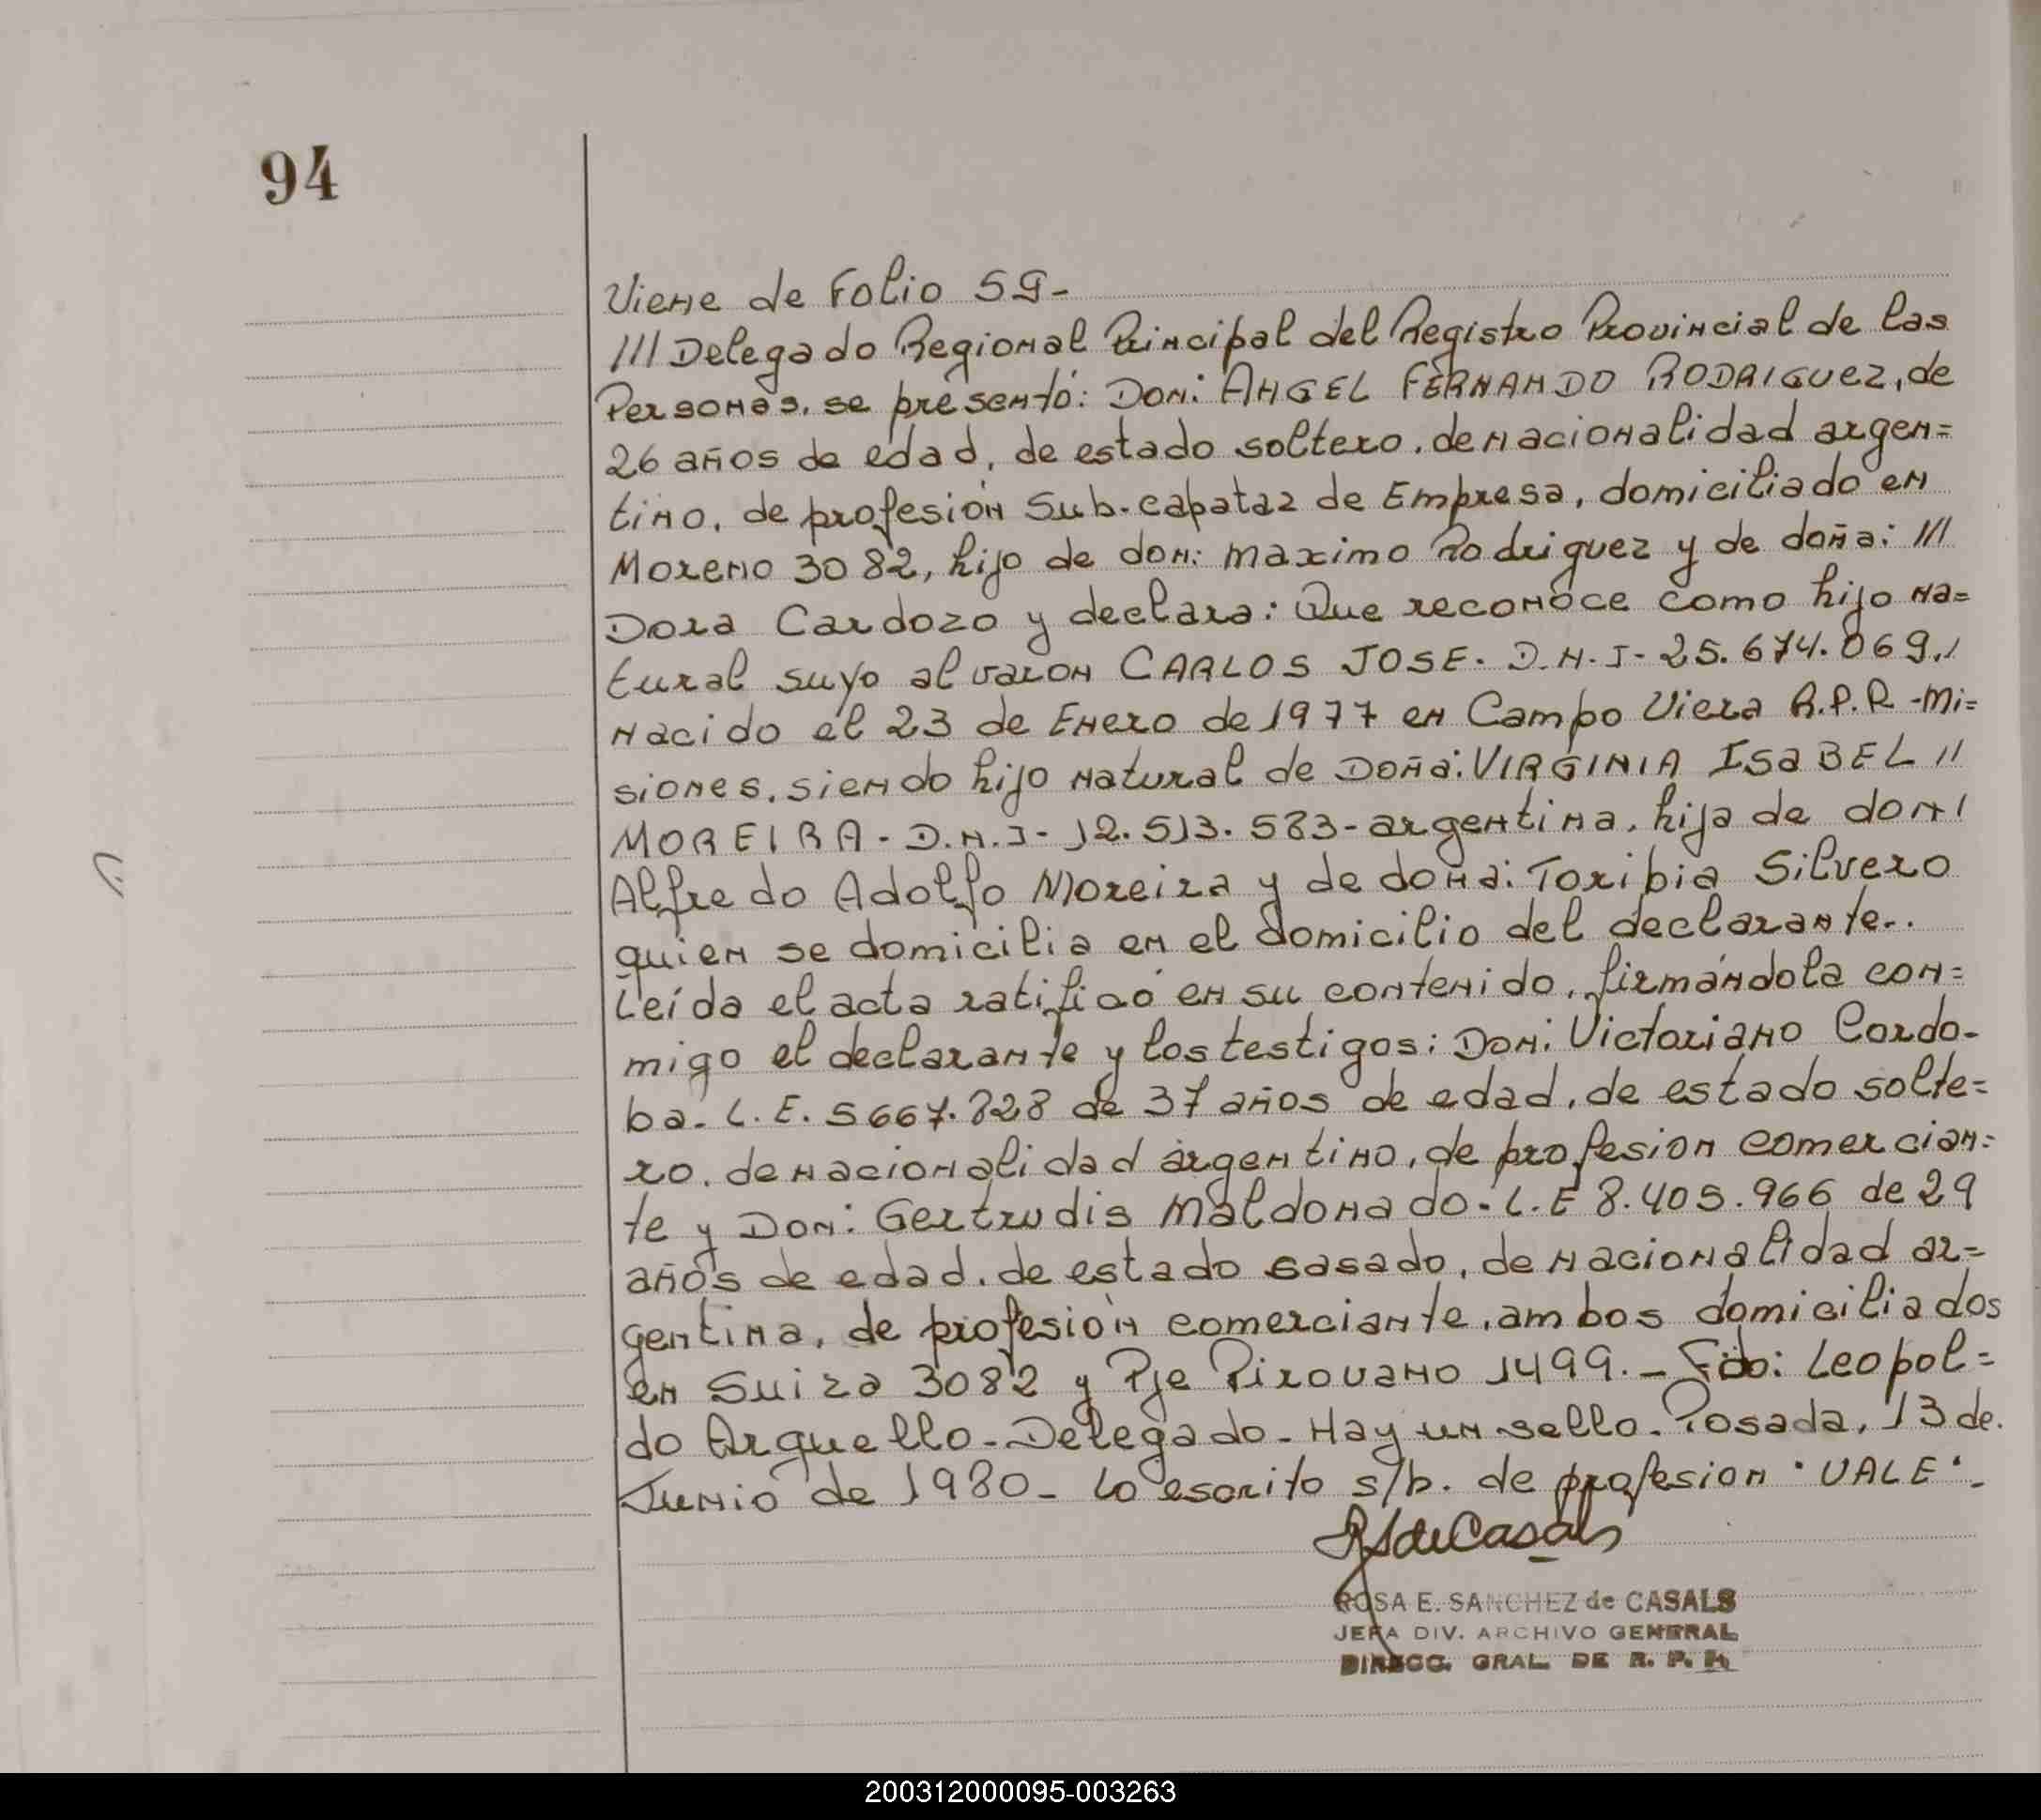 94
Viene de Folio 59-
/// Delegado Regional Principal del Registro Provincial de las
Personas, se presentó: Don: ANGEL FERNANDO RODRIGUEZ, de
26 años de edad, de estado soltero, de nacionalidad argen=
tino, de profesión Sub-capataz de Empresa, domiciliado en
Moreno 3082, hijo de don: maximo Rodriguez y de doña: ///
Dora Cardozo y declara: Que reconoce como hijo na=
tural suyo al varon CARLOS JOSE. D.N.I- 25.674.069,/
nacido el 23 de Enero de 1977 en Campo Viera R.P.R -Mi=
siones, siendo hijo natural de Doña: VIRGINIA ISaBEL //
MOREIRA - D.N.I- 12.513.583- argentina, hija de don/
Alfredo Adolfo Moreira y de doña: Toribia Silvero
quien se domicilia en el domicilio del declarante..
Leída el acta ratificó en su contenido, firmándola con=
migo el declarante y los testigos: Don: Victoriano Cordo-
ba- L.E. 5667.828 de 37 años de edad, de estado solte=
ro, de nacionalidad argentino, de profesion comercian=
te y Don: Gertrudis Maldonado- L.E 8.405.966 de 29
años de edad, de estado casado, de nacionalidad ar=
gentina, de profesión comerciante, ambos domiciliados
en Suiza 3082 y Pje Pirovano 1499.- Fdo: Leopol=
do Arguello- Delegado- Hay un sello- Posada, 13 de.
Junio de 1980- Lo escrito s/b. de profesion "VALE"-
RSdeCasals
ROSA E. SANCHEZ de CASALS
JEFA DIV. ARCHIVO GENERAL
DIRECC. GRAL. DE R. P. P.
200312000095-003263